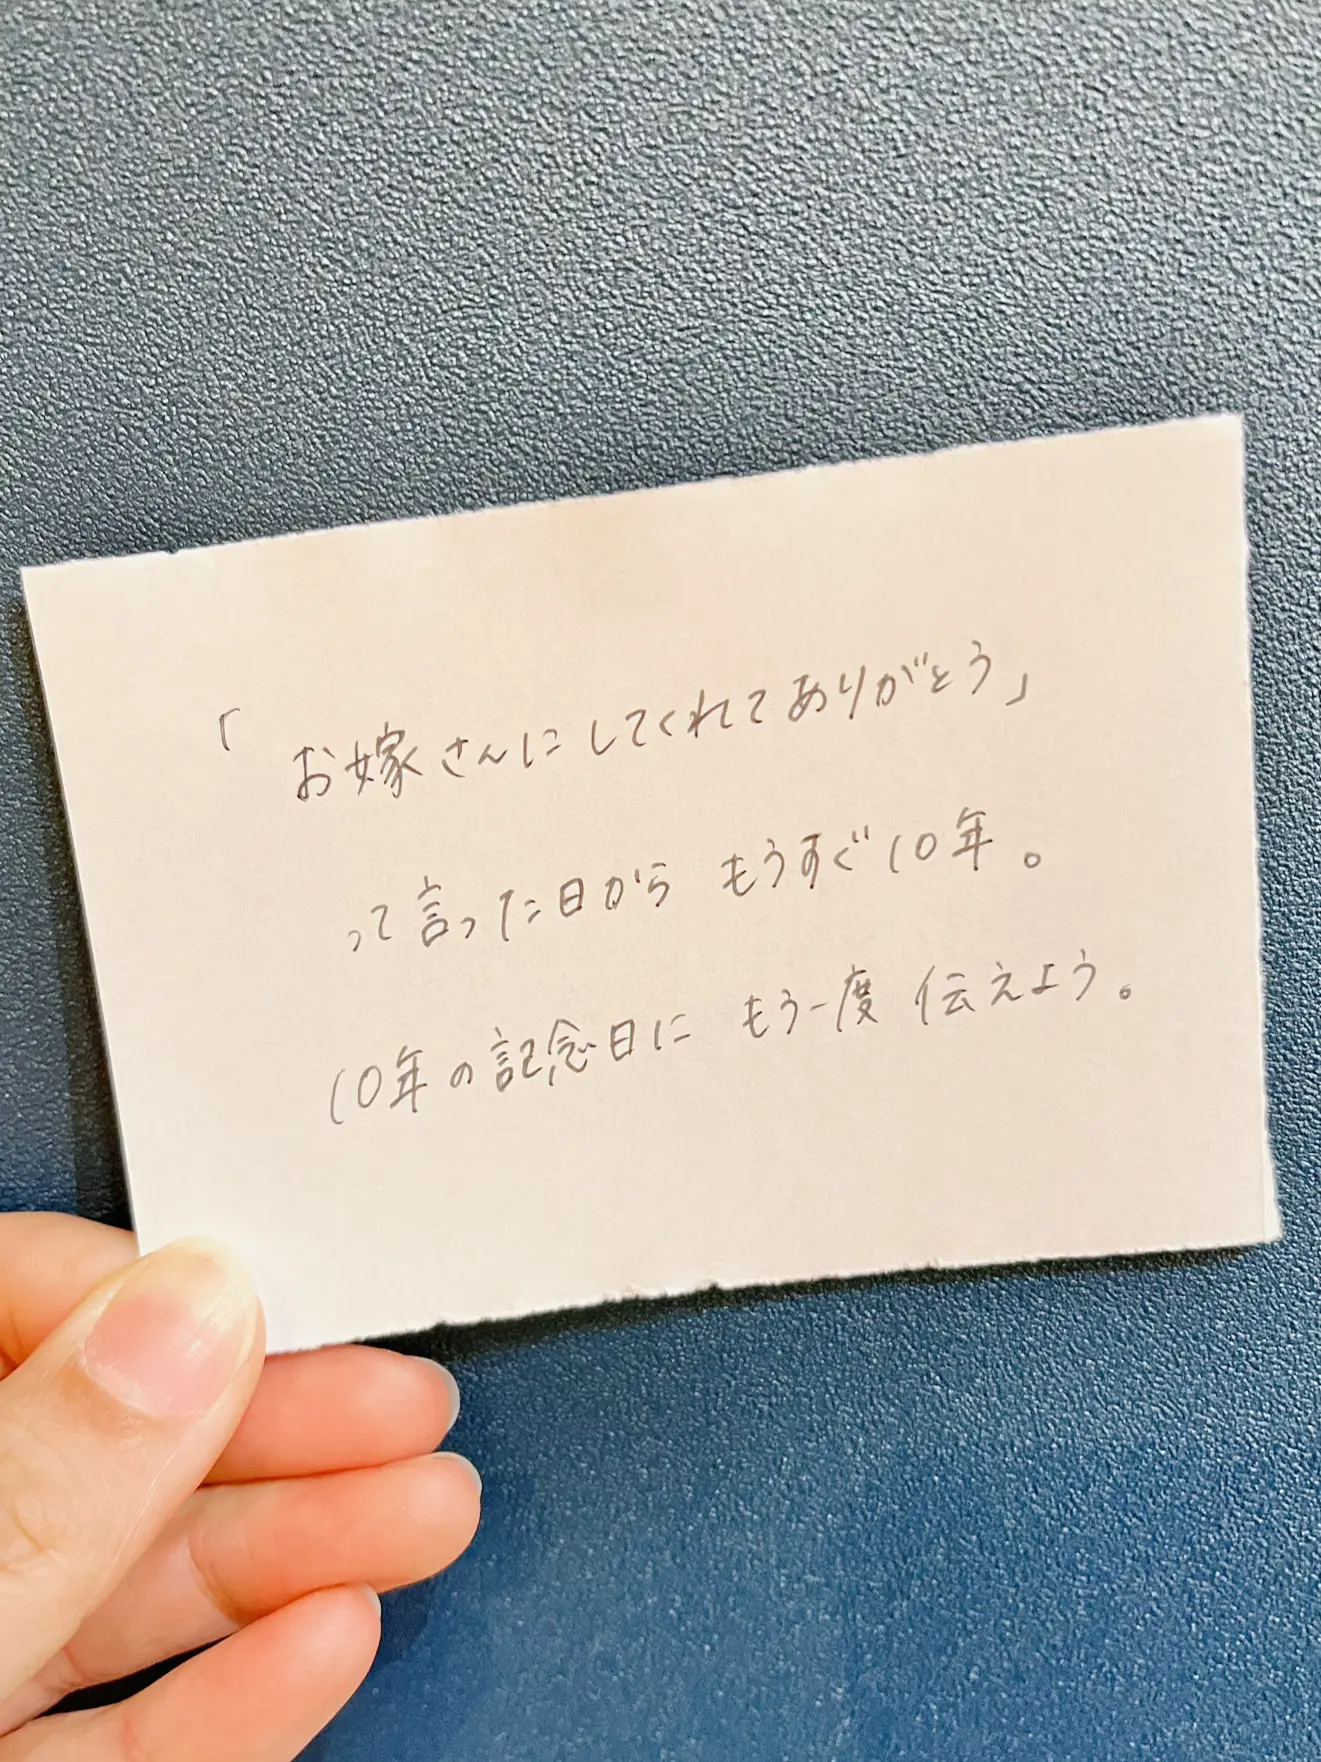 「お嫁さんにしてくれてありがとう」
って言った日から もうすぐ10年。
10年の記念日に もう一度 伝えよう。